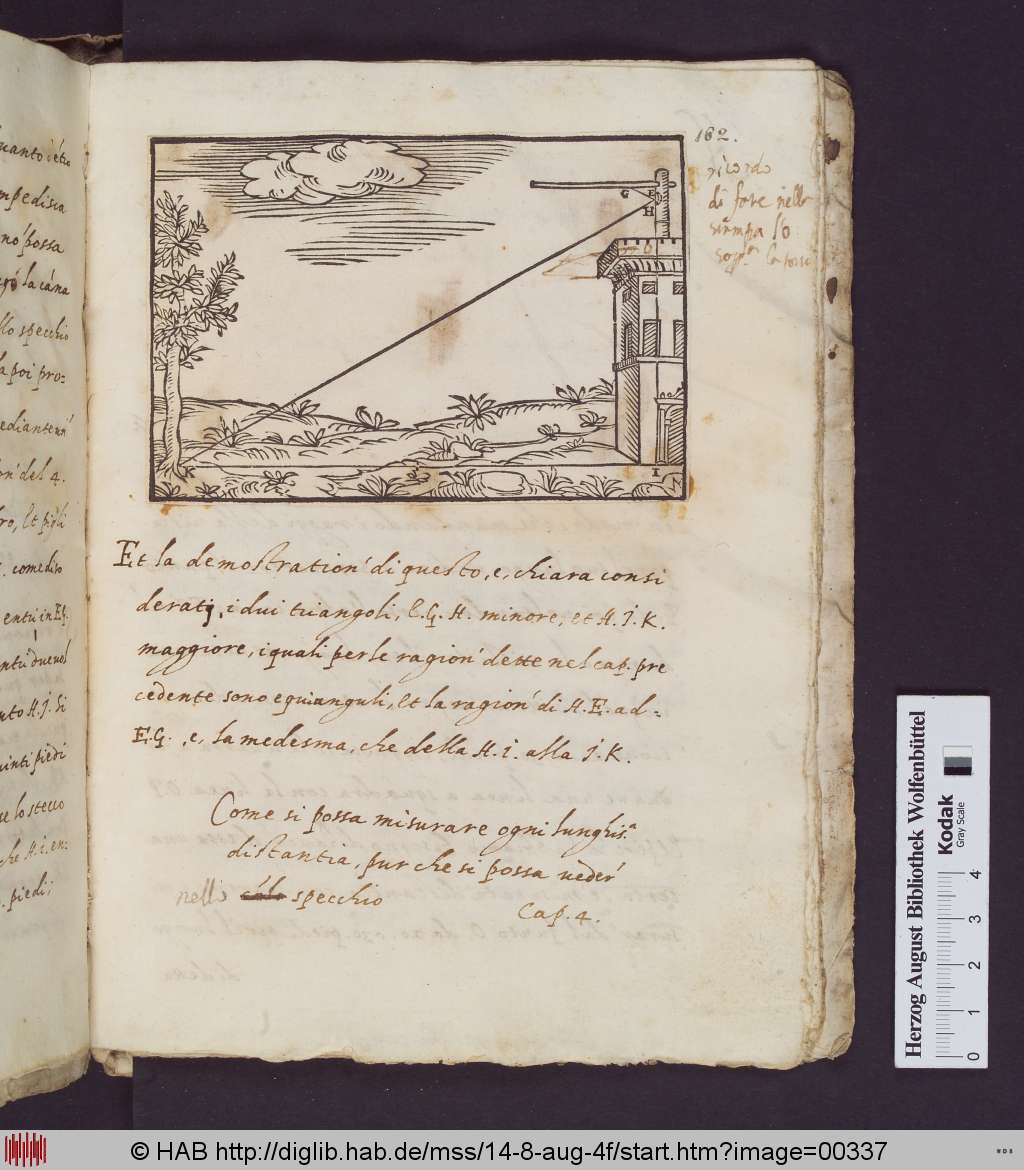 uanto
mpedisca
nó possa
la cána
llo specchio
la poi pro=
del 4.
come di so
in EG.
H.J. Si
uinti piedi
lo stecco
che H.i. en:
piedi;
162.
ricordo
di fare nella
stampa lo
G E
H
K I
Et la demostration' di questo, e, chiara consi
derati, i dui triangoli, E.G. H. minore, et H.J.K.
maggiore, i quali per le ragion' dette nel cap. pre
cedente sono equianguli, Et la ragion' di H.E. ad=
E.G. , e, la medesma, che della H.i. alla J.K.
Come si possa misurare ogni lunghis.ª
distantia, pur che si possa ueder'
nelli specchio
Cap. 4.
Herzog August Bibliothek Wolfenbüttel
Kodak
Gray Scale
0 1 2 3 4
© HAB http://diglib.hab.de/mss/14-8-aug-4f/start.htm?image=00337